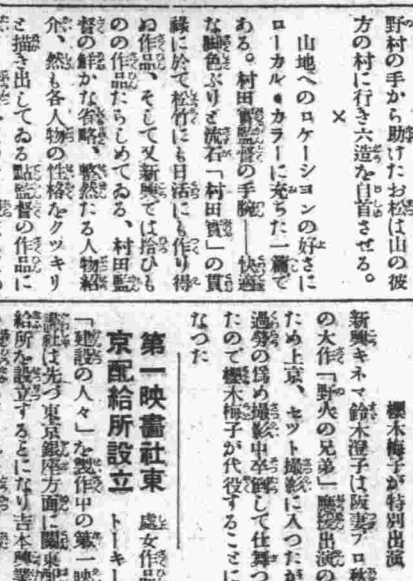 野村の手から助けたお松は山の彼
方の村に行き六造を自首させる。
×
山地へのロケーションの好さに
ローカル・カラーに充ちた一篇で
ある。村田實監督の手腕――快適
な脚色ぶりと流石「村田實」の貫
祿に於て松竹にも日活にも作り得
ぬ作品、そして又新興では拾ひも
のの作品たらしめてゐる、村田監
督の鮮かな省略、整然たる人物紹
介、然も各人物の性格をクツキリ
と描き出してゐる點監督の作品に
櫻木梅子が特別出演
新興キネマ鈴木澄子は阪妻プロ秋
の大作「野火の兄弟」應援出演の
ため上京、セツト撮影に入つたが
過勞の爲め撮影中卒倒して仕舞つ
たので櫻木梅子が代役することに
なつた
第一映畫社東
京配給所設立
處女作品
「建設の人々」を製作中の第一映
畫社は先づ東京銀座方面に關東配
給所を設立することになり吉本興業
トーキー